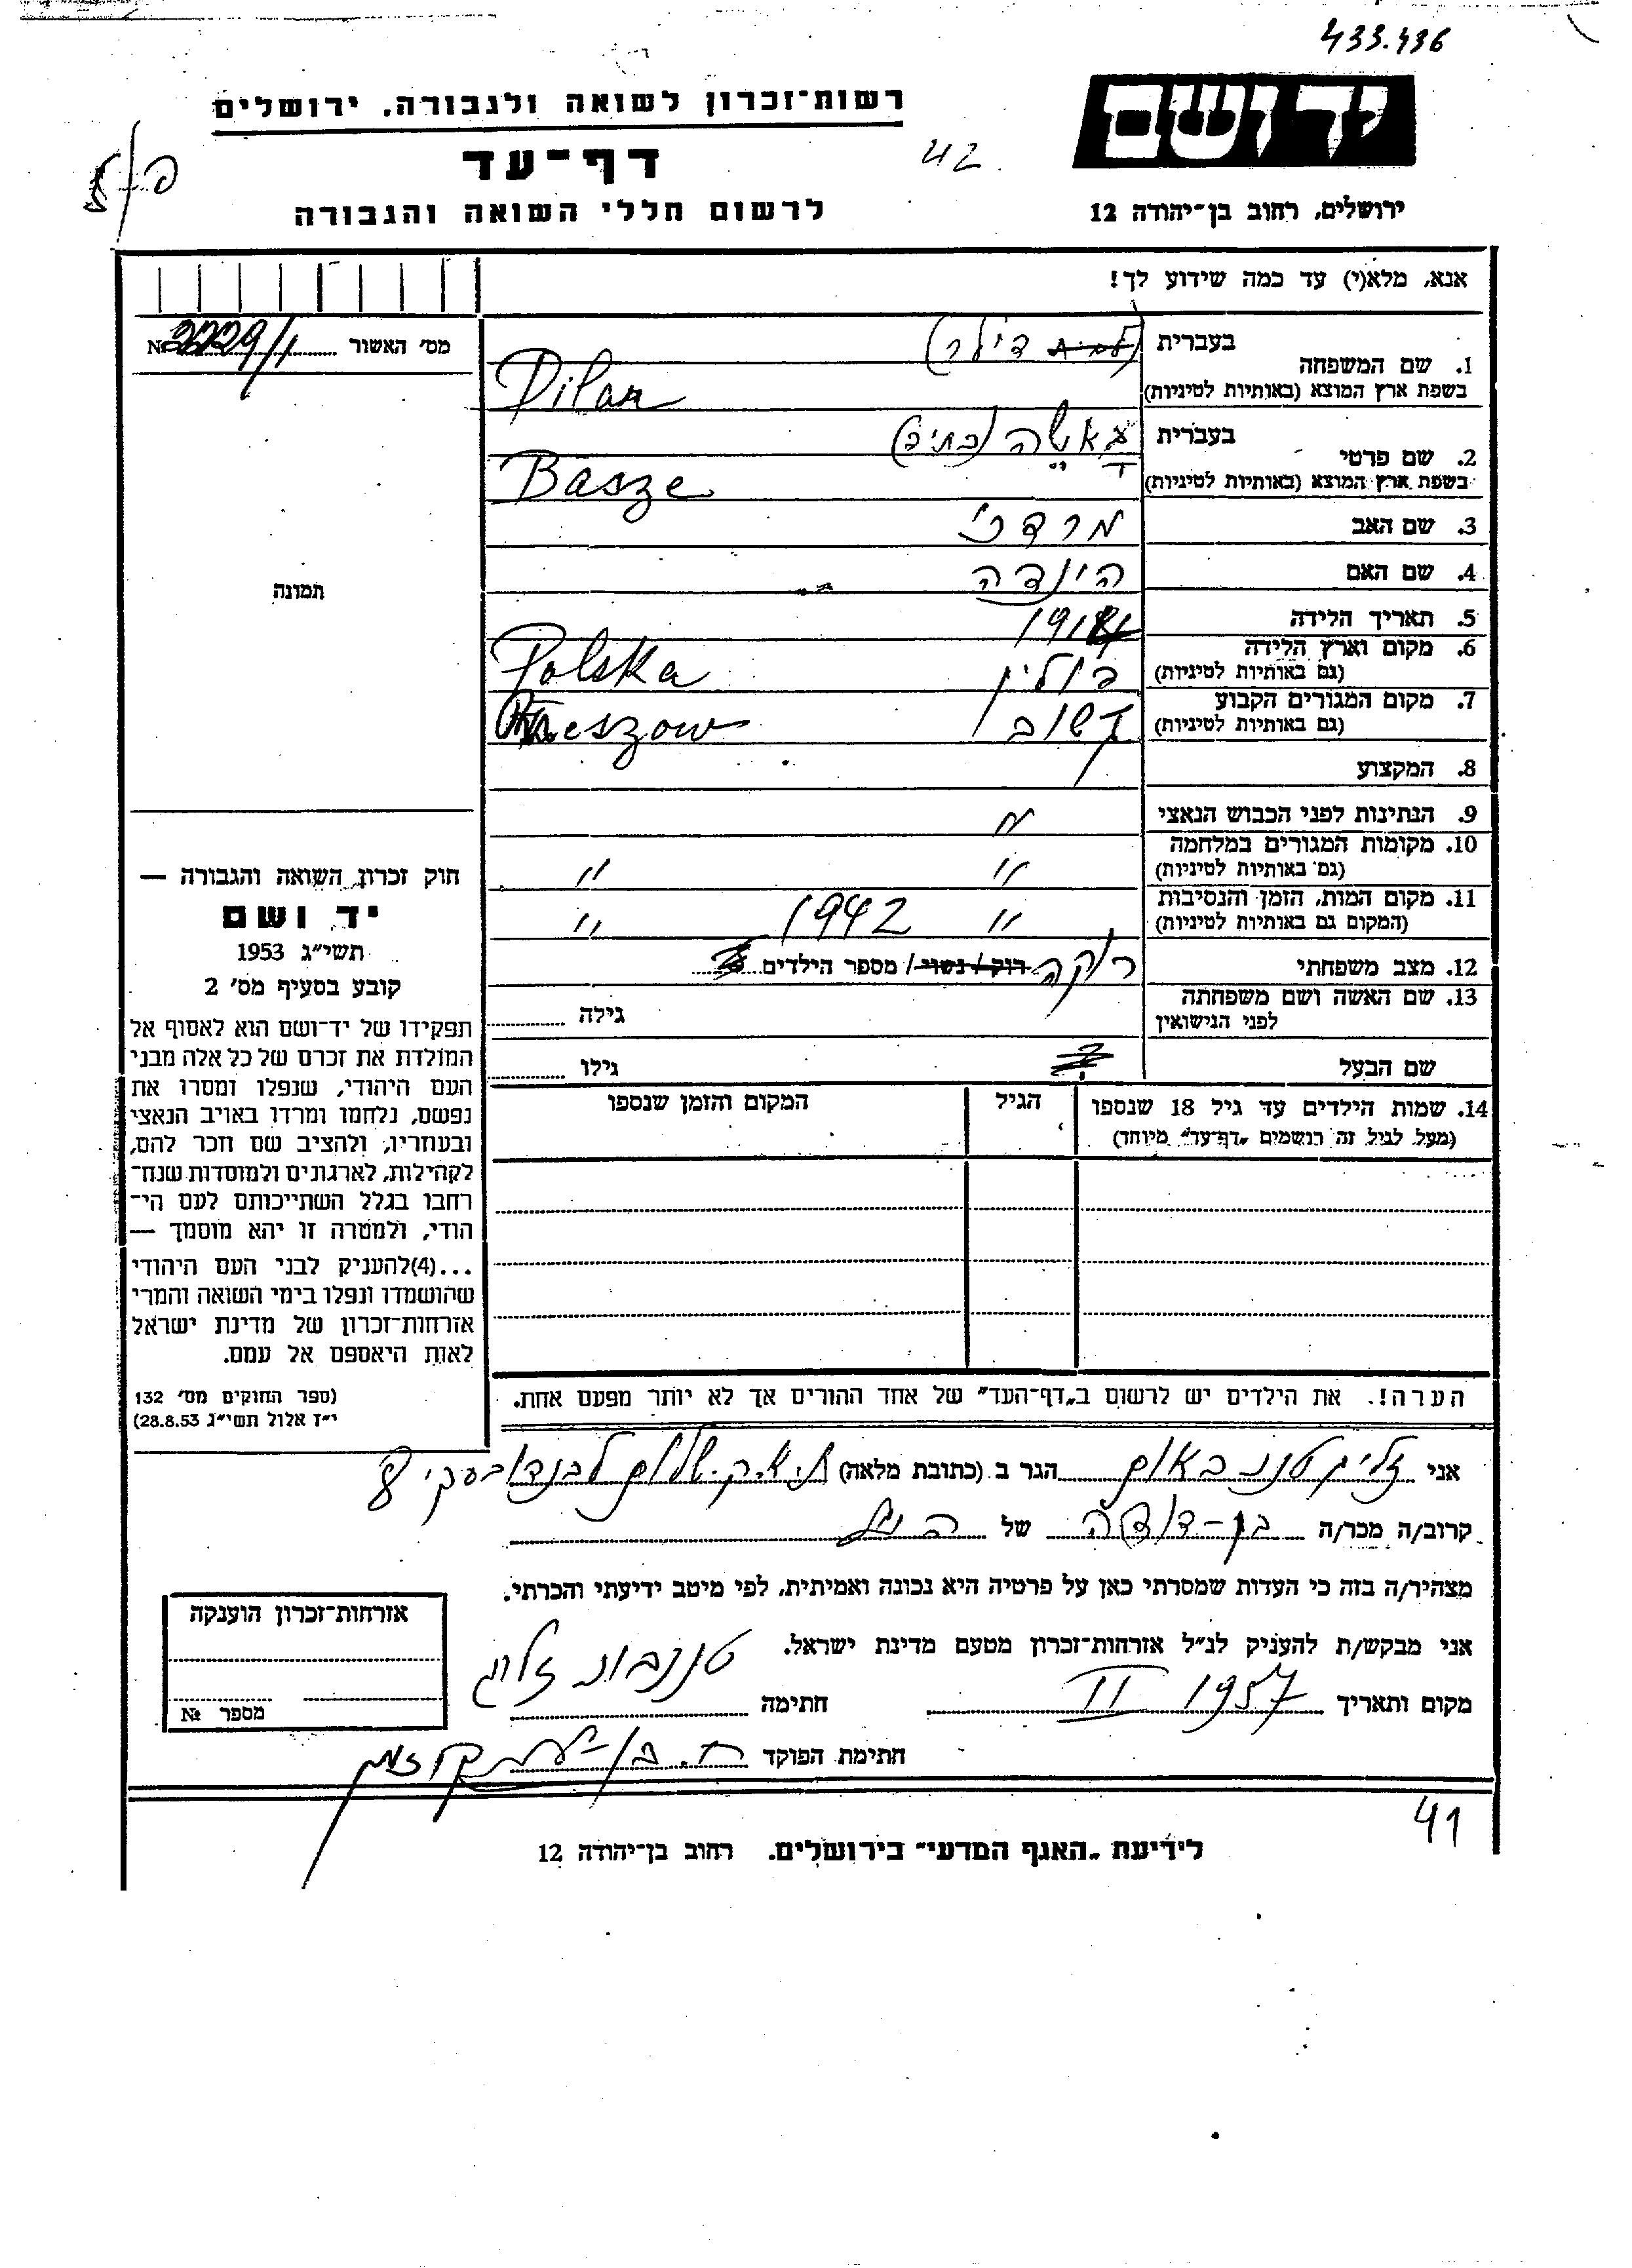 433.436
רשות־זכרון לשואה ולגבורה, ירושלים
יד ושם
דף־עד
42
לרשום חללי השואה והגבורה
ירושלים, רחוב בן־יהודה 12
אנא, מלא(י) עד כמה שידוע לך!
מס׳ האשור №2229/1
1. שם המשפחה
בעברית דילר)
בשפת ארץ המוצא (באותיות לטיניות) Dilar
2. שם פרטי
בעברית באשה (בתיה)
בשפת ארץ המוצא (באותיות לטיניות) Basze
3. שם האב מרדכי
4. שם האם הינדה
תמונה
5. תאריך הלידה
6. מקום וארץ הלידה
(גם באותיות לטיניות) פולין Polska
7. מקום המגורים הקבוע
(גם באותיות לטיניות)
8. המקצוע
9. הנתינות לפני הכבוש הנאצי "
10. מקומות המגורים במלחמה
(גם באותיות לטיניות) " "
11. מקום המות, הזמן והנסיבות
(המקום גם באותיות לטיניות) " 1942 "
12. מצב משפחתי רוקה רוק / נשוי / מספר הילדים
13. שם האשה ושם משפחתה
לפני הנישואין
גילה
שם הבעל
גילו
14. שמות הילדים עד גיל 18 שנספו
(מעל לגיל זה רושמים „דף־עד” מיוחד)
הגיל
המקום והזמן שנספו
חוק זכרון השואה והגבורה —
יד ושם
תשי״ג 1953
קובע בסעיף מס׳ 2
תפקידו של יד־ושם הוא לאסוף אל
המולדת את זכרם של כל אלה מבני
העם היהודי, שנפלו ומסרו את
נפשם, נלחמו ומרדו באויב הנאצי
ובעוזריו, ולהציב שם וזכר להם,
לקהילות, לארגונים ולמוסדות שנח־
רבו בגלל השתייכותם לעם הי־
הודי, ולמטרה זו יהא מוסמך —
...(4)להעניק לבני העם היהודי
שהושמדו ונפלו בימי השואה והמרי
אזרחות־זכרון של מדינת ישראל
לאות היאספם אל עמם.
(ספר החוקים מס׳ 132
י״ז אלול תשי״ג 28.8.53)
הערה!. את הילדים יש לרשום ב„דף־העד” של אחד ההורים אך לא יותר מפעם אחת.
אני זליג טננבאום הגר ב (כתובת מלאה)
קרוב/ה מכר/ה בן-דודה של הנ״ל
מצהיר/ה בזה כי העדות שמסרתי כאן על פרטיה היא נכונה ואמיתית, לפי מיטב ידיעתי והכרתי.
אני מבקש/ת להעניק לנ״ל אזרחות־זכרון מטעם מדינת ישראל.
מקום ותאריך 1957 II חתימה טננבוים זליג
חתימת הפוקד
אזרחות־זכרון הוענקה
מספר №
41
לידיעת „האגף המדעי” בירושלים. רחוב בן־יהודה 12